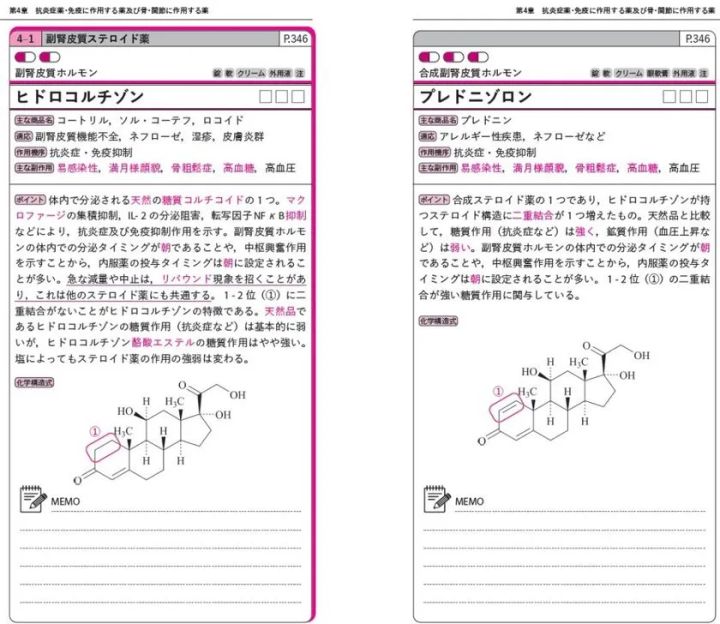 第4章　抗炎症薬・免疫に作用する薬及び骨・関節に作用する薬
4-1　副腎皮質ステロイド薬　P.346
副腎皮質ホルモン　錠　軟　クリーム　外用液　注
ヒドロコルチゾン
主な商品名 コートリル，ソル・コーテフ，ロコイド
適応 副腎皮質機能不全，ネフローゼ，湿疹，皮膚炎群
作用機序 抗炎症・免疫抑制
主な副作用 易感染性，満月様顔貌，骨粗鬆症，高血糖，高血圧
ポイント 体内で分泌される天然の糖質コルチコイドの1つ。マク
ロファージの集積抑制，IL-2の分泌阻害，転写因子NFκB抑制
などにより，抗炎症及び免疫抑制作用を示す。副腎皮質ホルモ
ンの体内での分泌タイミングが朝であることや，中枢興奮作用
を示すことから，内服薬の投与タイミングは朝に設定されるこ
とが多い。急な減量や中止は，リバウンド現象を招くことがあ
り，これは他のステロイド薬にも共通する。1-2位（①）に二
重結合がないことがヒドロコルチゾンの特徴である。天然品で
あるヒドロコルチゾンの糖質作用（抗炎症など）は基本的に弱
いが，ヒドロコルチゾン酪酸エステルの糖質作用はやや強い。
塩によってもステロイド薬の作用の強弱は変わる。
化学構造式
O
OH
H₃C
HO
H
OH
①
H₃C
H
H
H
O
MEMO
第4章　抗炎症薬・免疫に作用する薬及び骨・関節に作用する薬
P.346
合成副腎皮質ホルモン　錠　軟　クリーム　眼軟膏　外用液　注
プレドニゾロン
主な商品名 プレドニン
適応 アレルギー性疾患，ネフローゼなど
作用機序 抗炎症・免疫抑制
主な副作用 易感染性，満月様顔貌，骨粗鬆症，高血糖，高血圧
ポイント 合成ステロイド薬の1つであり，ヒドロコルチゾンが持
つステロイド構造に二重結合が1つ増えたもの。天然品と比較
して，糖質作用（抗炎症など）は強く，鉱質作用（血圧上昇な
ど）は弱い。副腎皮質ホルモンの体内での分泌タイミングが朝
であることや，中枢興奮作用を示すことから，内服薬の投与タ
イミングは朝に設定されることが多い。1-2位（①）の二重結
合が強い糖質作用に関与している。
化学構造式
O
OH
H₃C
HO
H
OH
①
H₃C
H
H
H
O
MEMO